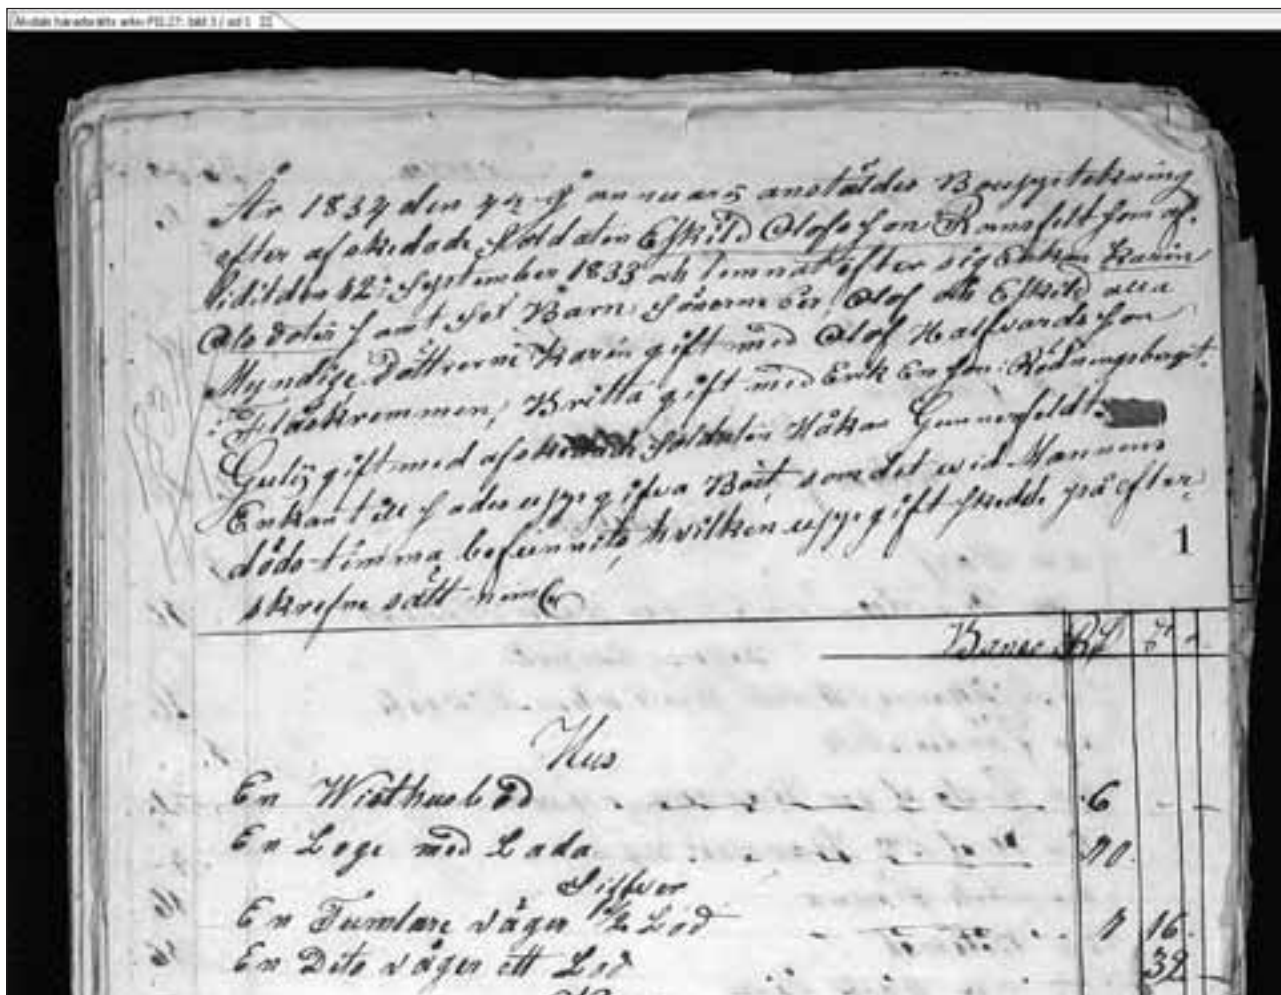 År 1834 den Januarii anstäldes Bouppteckning
efter afskedade Soldaten Eskild Olofsson Ramsfelt som af-
lidit den 12 September 1833 och lemnat efter sig Enkan Karin
Olsdoter samt Sex Barn, Sönerne Per, Olof och Eskild alla
Myndige. Döttrerne Karin gift med Olof Halfvardsson
Fläskremmen, Britta gift med Erik Ersson Rödningsberget.
Guly gift med afskedade Soldaten Håkan Gunnerfeldt
Enkan tillsades uppgifva Boet, som det wid Mannens
döds-timma befunnits, hvilken uppgift skedde på efter-
skrefne sätt
1
Banco Rd
Hus
En Wisthusbod 6
En Loge med Lada 10.
Silfver
En Tumlare väger 2 Lod 1 16.
En Dito väger ett Lod 32